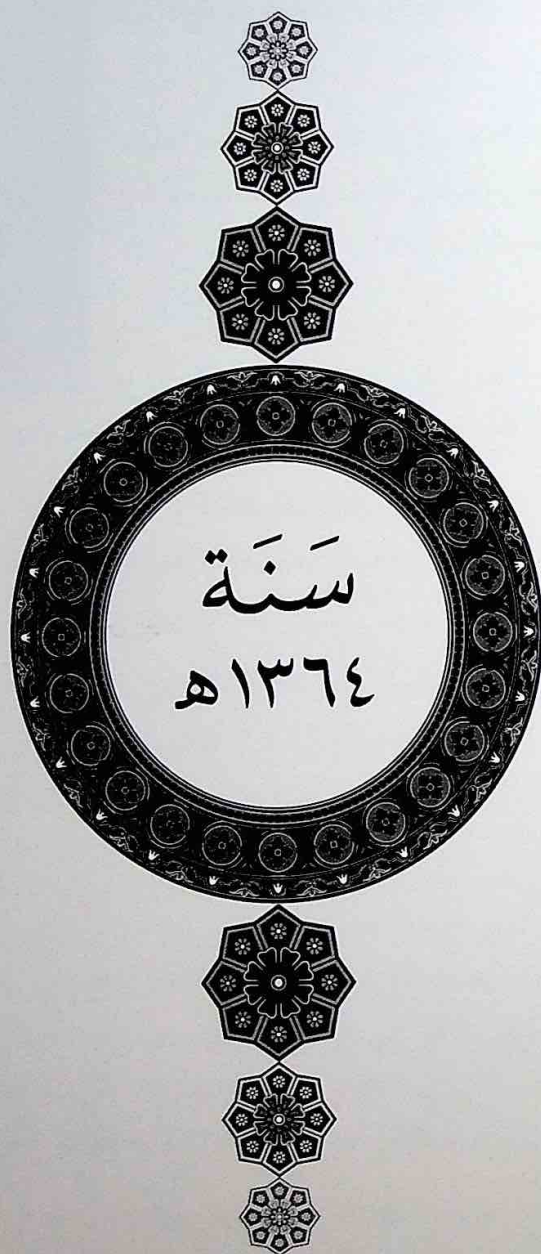 سَنَة
١٣٦٤ه